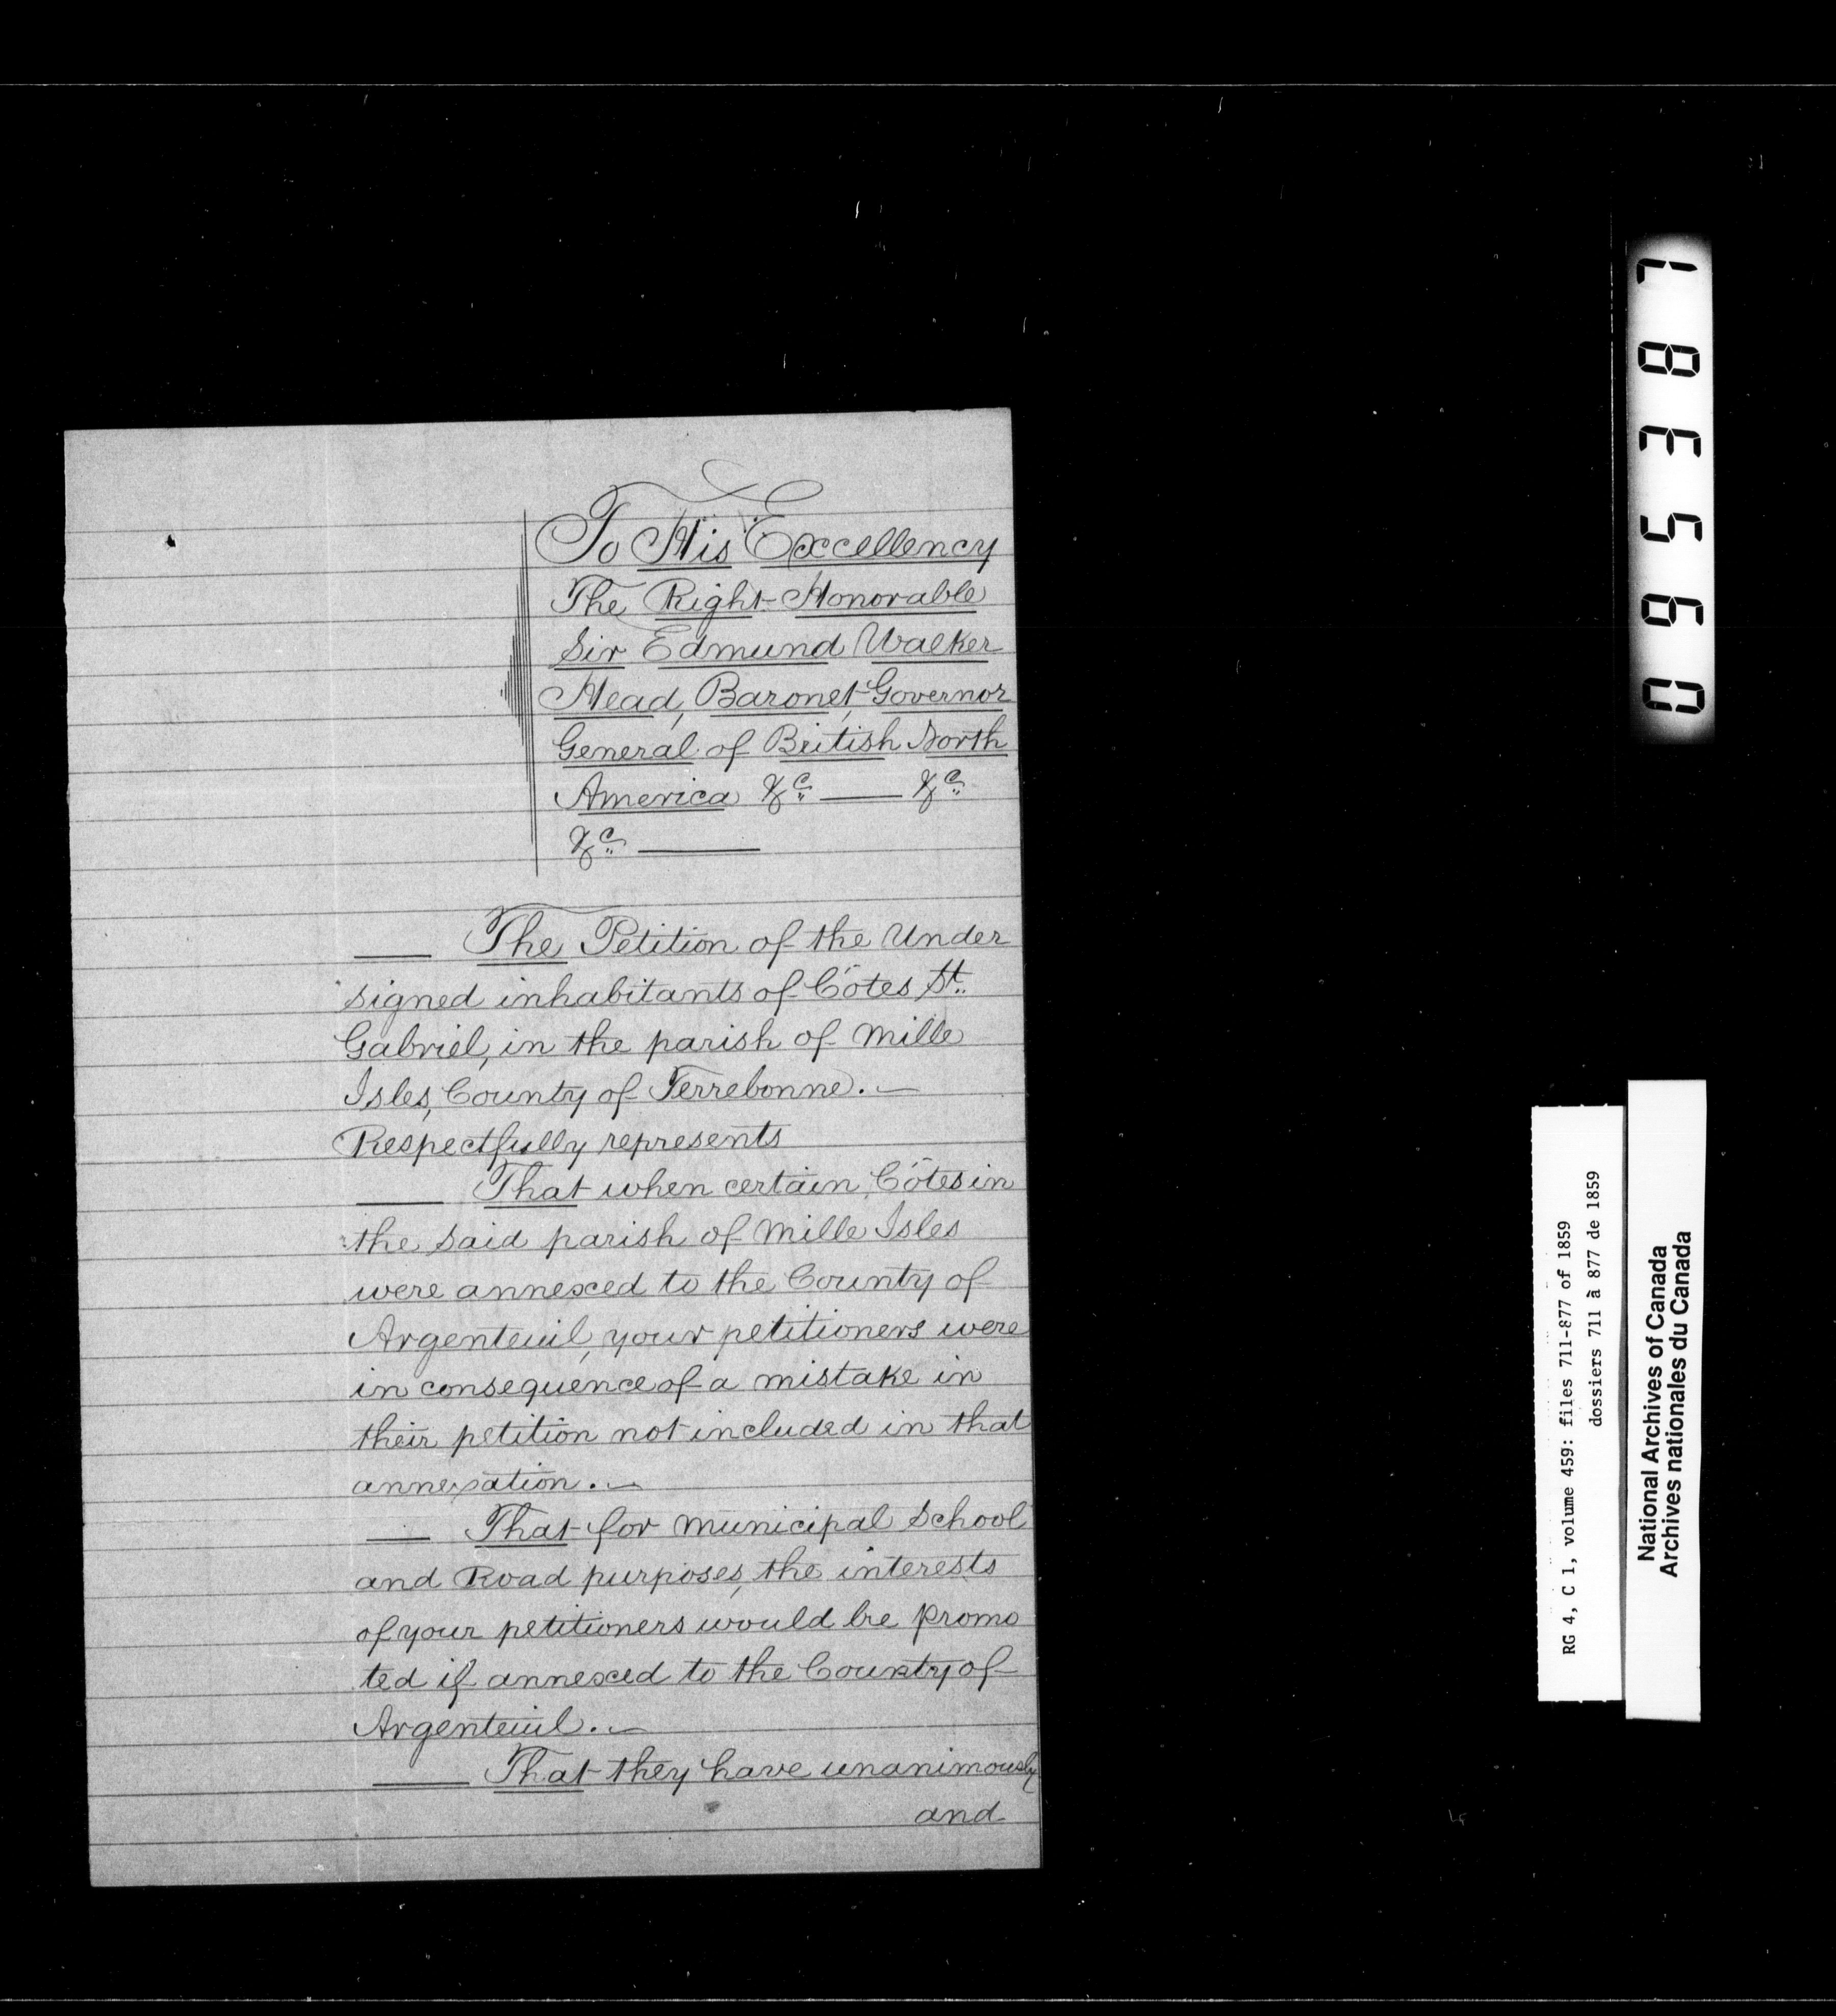 To His Excellency
The Right Honorable
Sir Edmund Walker
Head, Baronet, Governor
General of British North
America &c. —— &c.
&c. ——
—— The Petition of the Under
signed inhabitants of Côtes St.
Gabriel, in the parish of Mille
Isles, County of Terrebonne. —
Respectfully represents
—— That when certain Côtes in
the said parish of Mille Isles
were annexed to the County of
Argenteuil, your petitioners were
in consequence of a mistake in
their petition not included in that
annexation. —
—— That for Municipal School
and Road purposes, the interests
of your petitioners would be promo
ted if annexed to the County of
Argenteuil. —
—— That they have unanimously
and
095387
RG 4, C 1, volume 459: files 711-877 of 1859
dossiers 711 à 877 de 1859
National Archives of Canada
Archives nationales du Canada